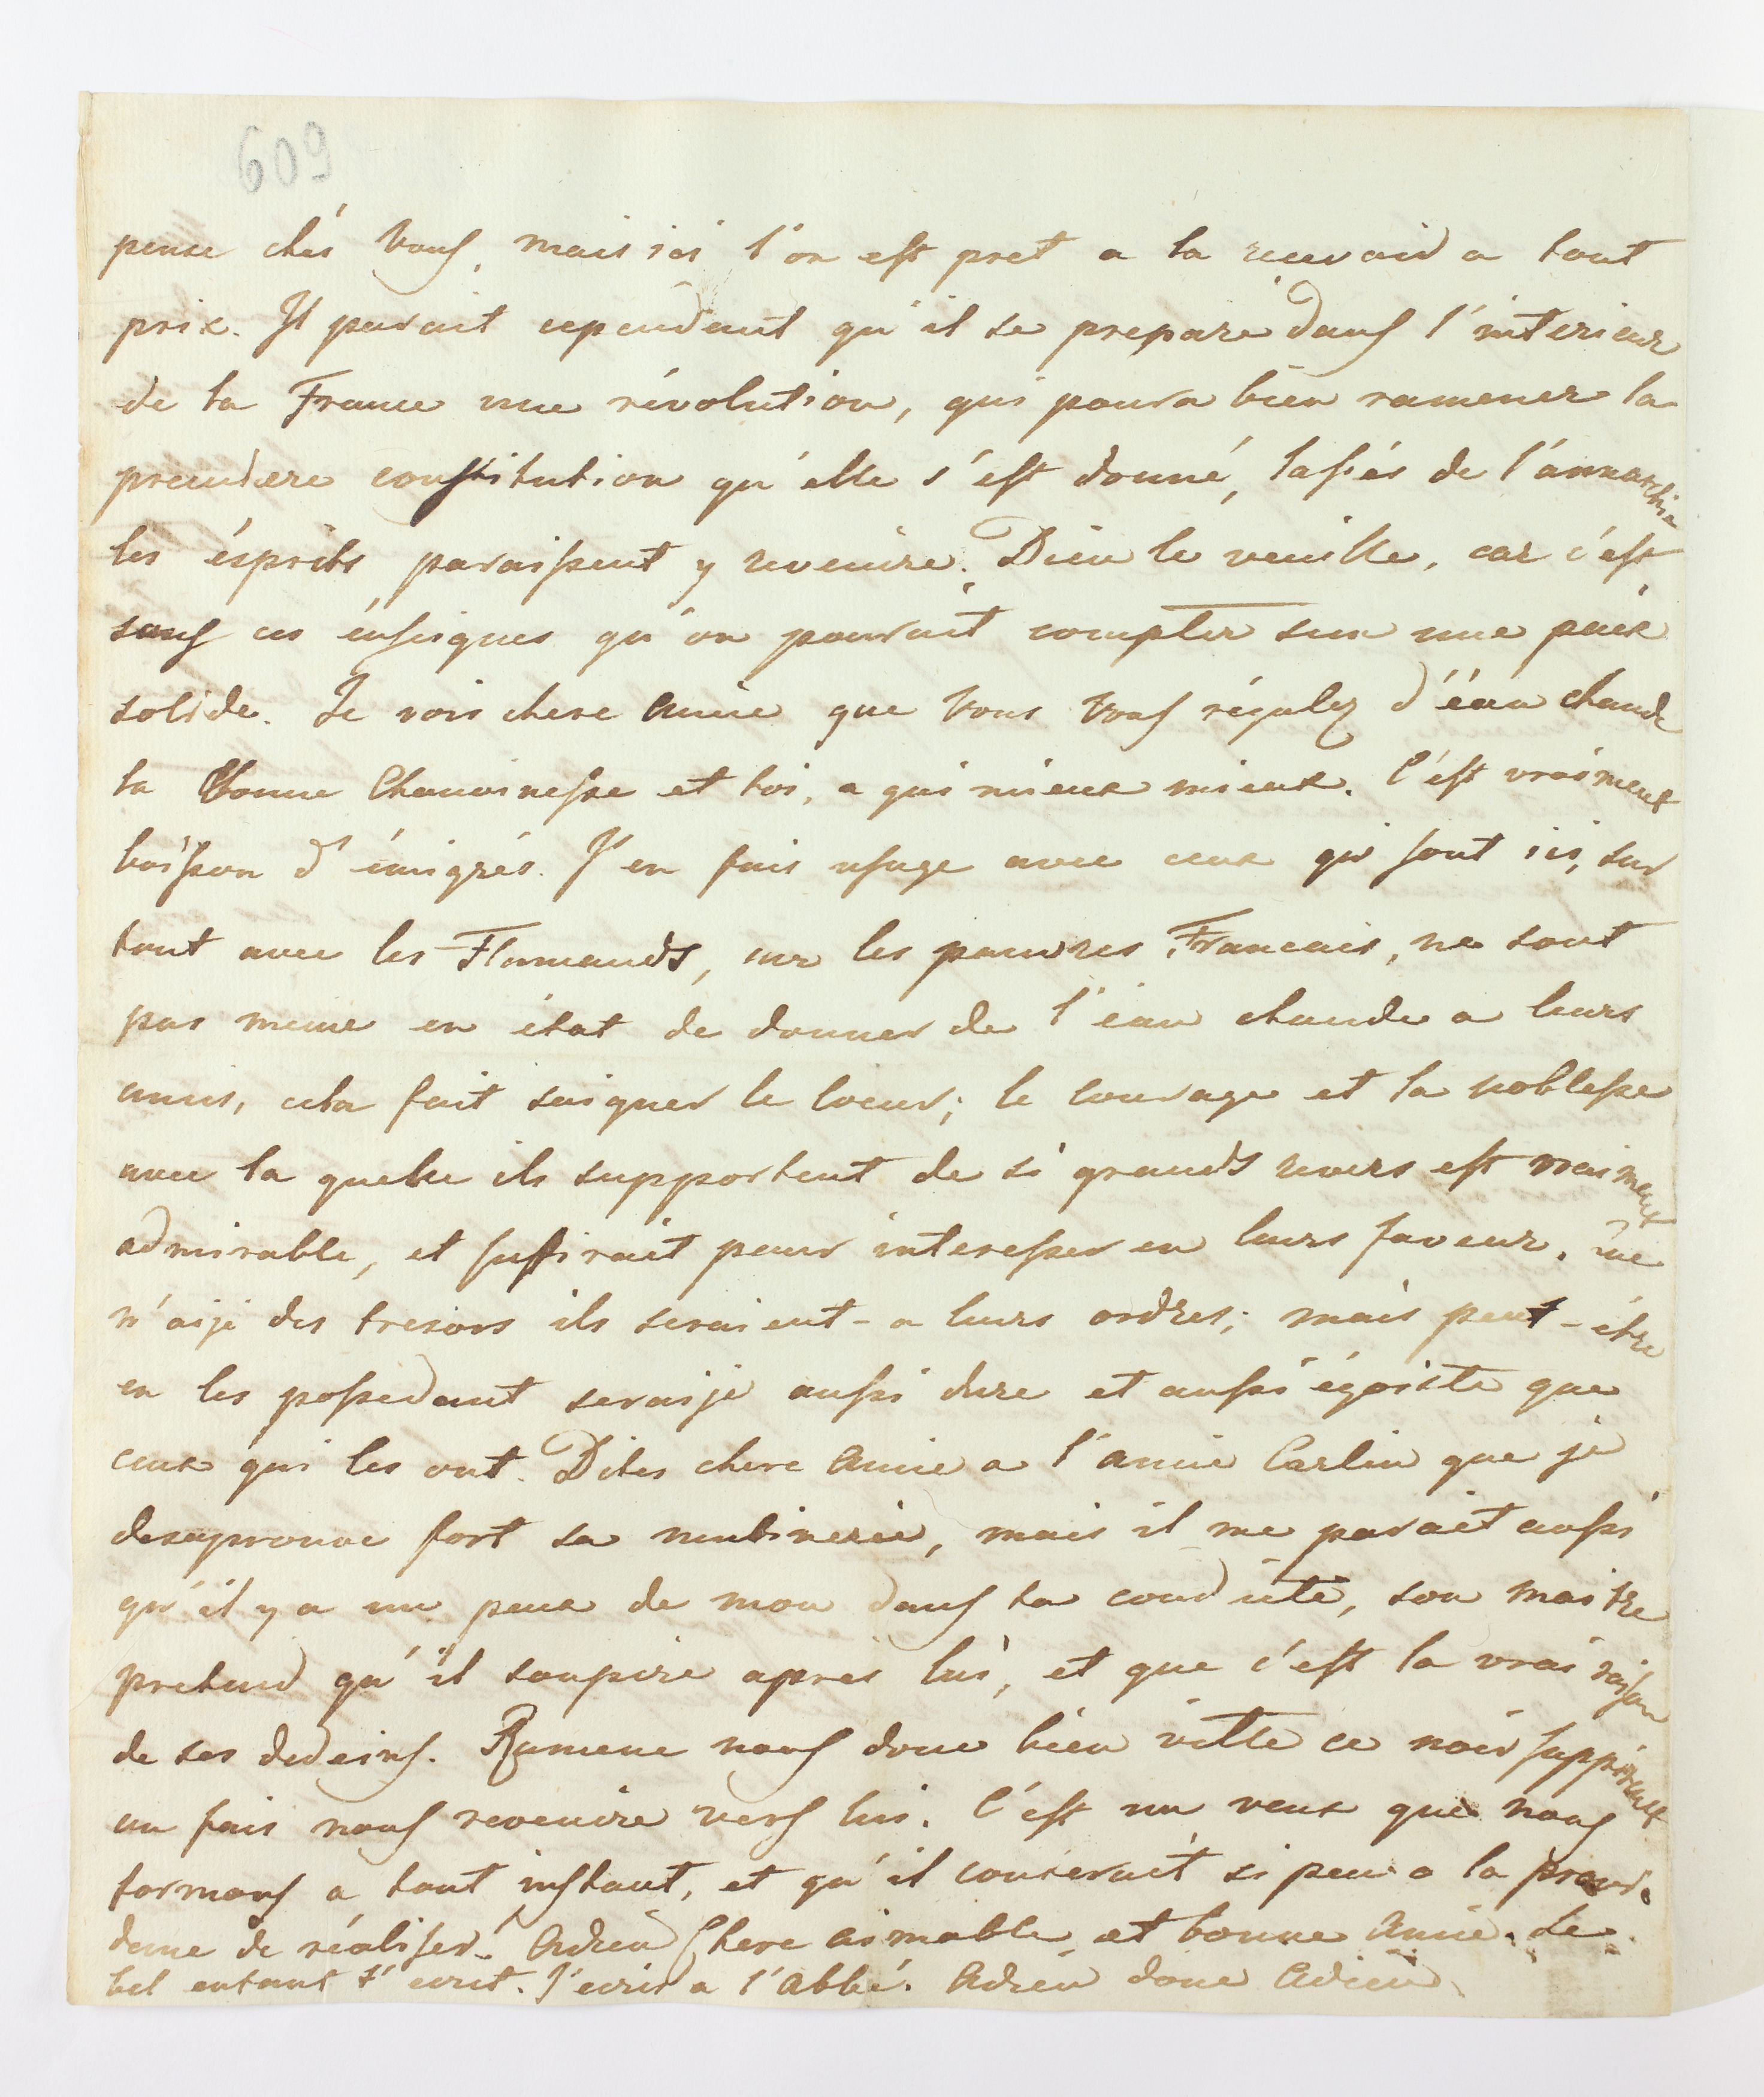 609
pense chés vous, mais ici l'on est pret a la recevoir a tout
prix. Il parait cependant qu'il se prepare dans l'interieur
de la France une révolution, qui poura bien ramener la
premiere constitution qu'elle s'est donné, lassés de l'annarchie
les ésprits paraissent y revenire. Dieu le veuille, car c'est
sous ces énseignes qu'on pourait compter sur une paix
solide. Je vois chere Amie que vous vous régalez d'éau chaude
la bonne Chanoinesse et toi, a qui mieux mieux. C'est vraiment
boisson d'émigrés. J'en fais usage avec ceux qui sont ici, sur
tout avec les Flamands, car les pauvres Francais, ne sont
pas meme en état de donner de l'éau chaude a leurs
amis, cela fait saigner le coeur; le courage et la noblesse
avec la quelle ils supportent de si grands revers est vraiment
admirable, et suffirait pour interesser en leurs faveur. que
n'aije des tresors ils seraient-a leurs ordres; mais peut-être
en les possedant seraije aussi dure et aussi égoiste que
ceux qui les ont. Dites chere Amie a l'amie Carlin que je
desaprouve fort sa mutinerie, mais il me parait aussi
qu'il y a un peux de mou dans ta conduite, son maitre
pretend qu'il soupire apres lui, et que c'est la vrai raison
de ses dedeins. Ramene nous donc bien vitte ce noir suppirant
en fais nous revenire vers lui. C'est un veux que nous
formons a tout instant, et qu'il couterait si peu a la provi-
dence de réaliser. Adieu Chere aimable et bonne Amie. Le
bel enfant t'ecrit. J'ecris a l'Abbé. Adieu donc Adieu